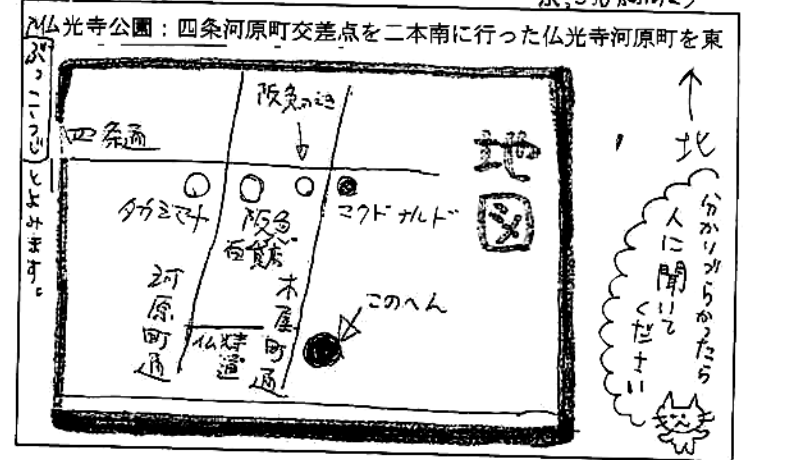 仏光寺公園：四条河原町交差点を二本南に行った仏光寺河原町を東
ぶっこうじとよみます。
↑
北
地図
阪急のえき
四条通
タカシマヤ
阪急百貨店
マクドナルド
河原町通
木屋町通
仏光寺通
このへん
分かりづらかったら
人に聞いて
ください